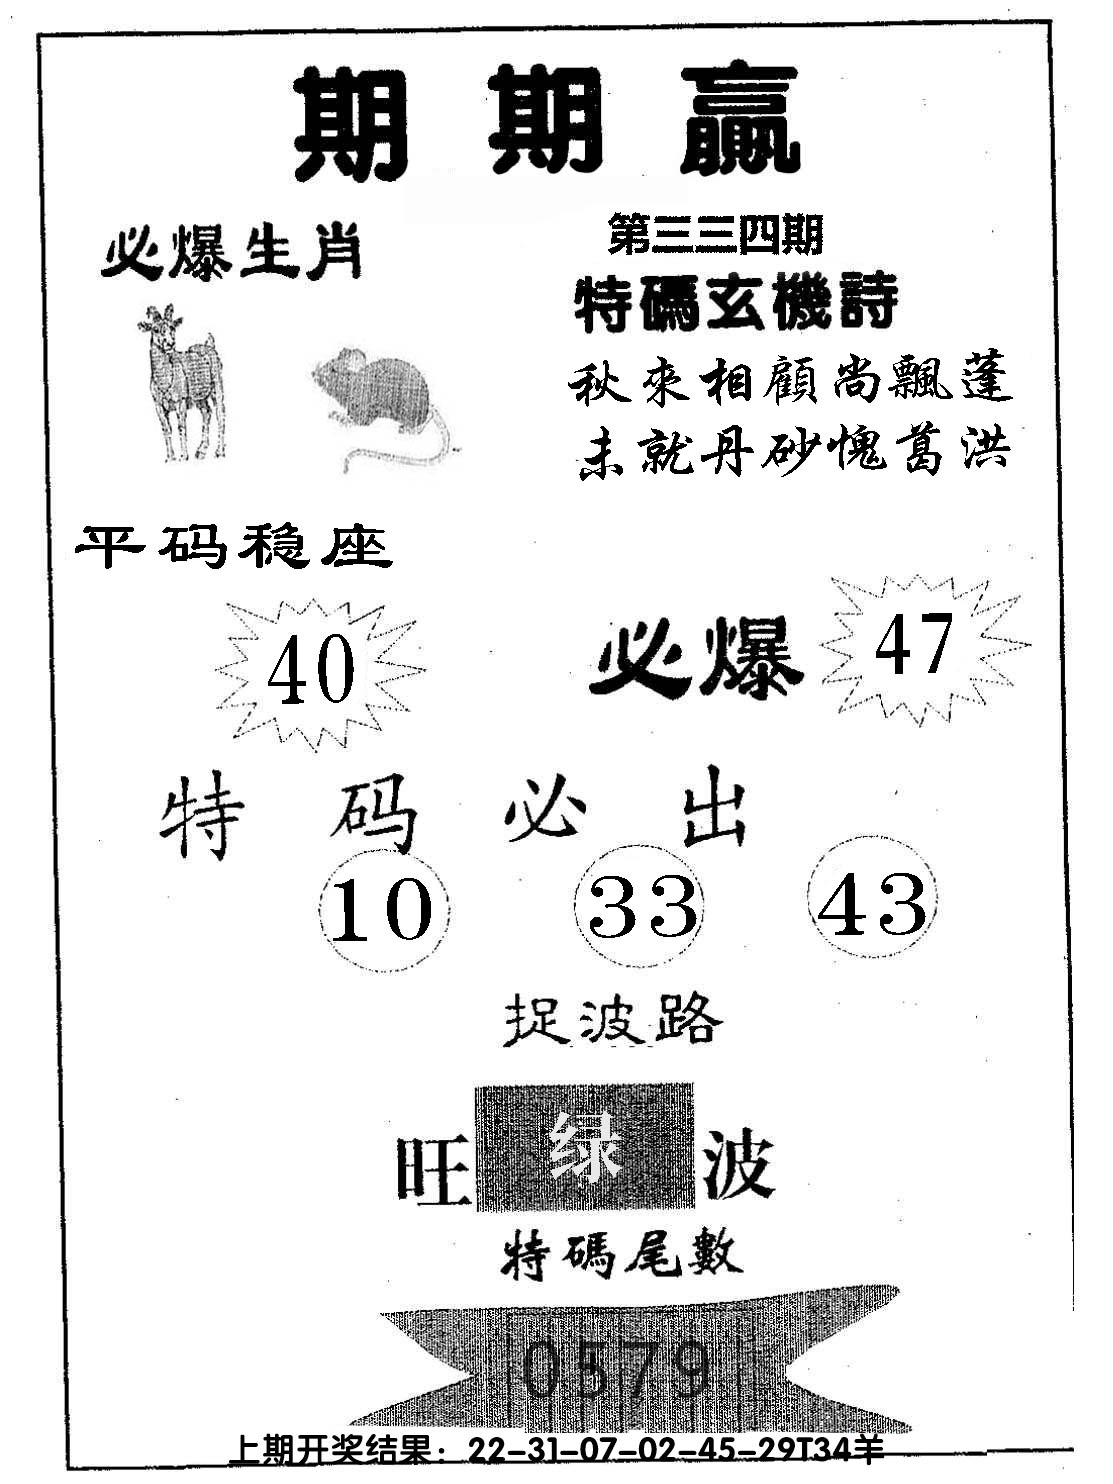 期期赢
必爆生肖
第三三四期
特碼玄機詩
秋來相顧尚飄蓬
未就丹砂愧葛洪
平码稳座
40
必爆 47
特码必出
10 33 43
捉波路
旺 绿 波
特碼尾數
0579
上期开奖结果：22-31-07-02-45-29T34羊